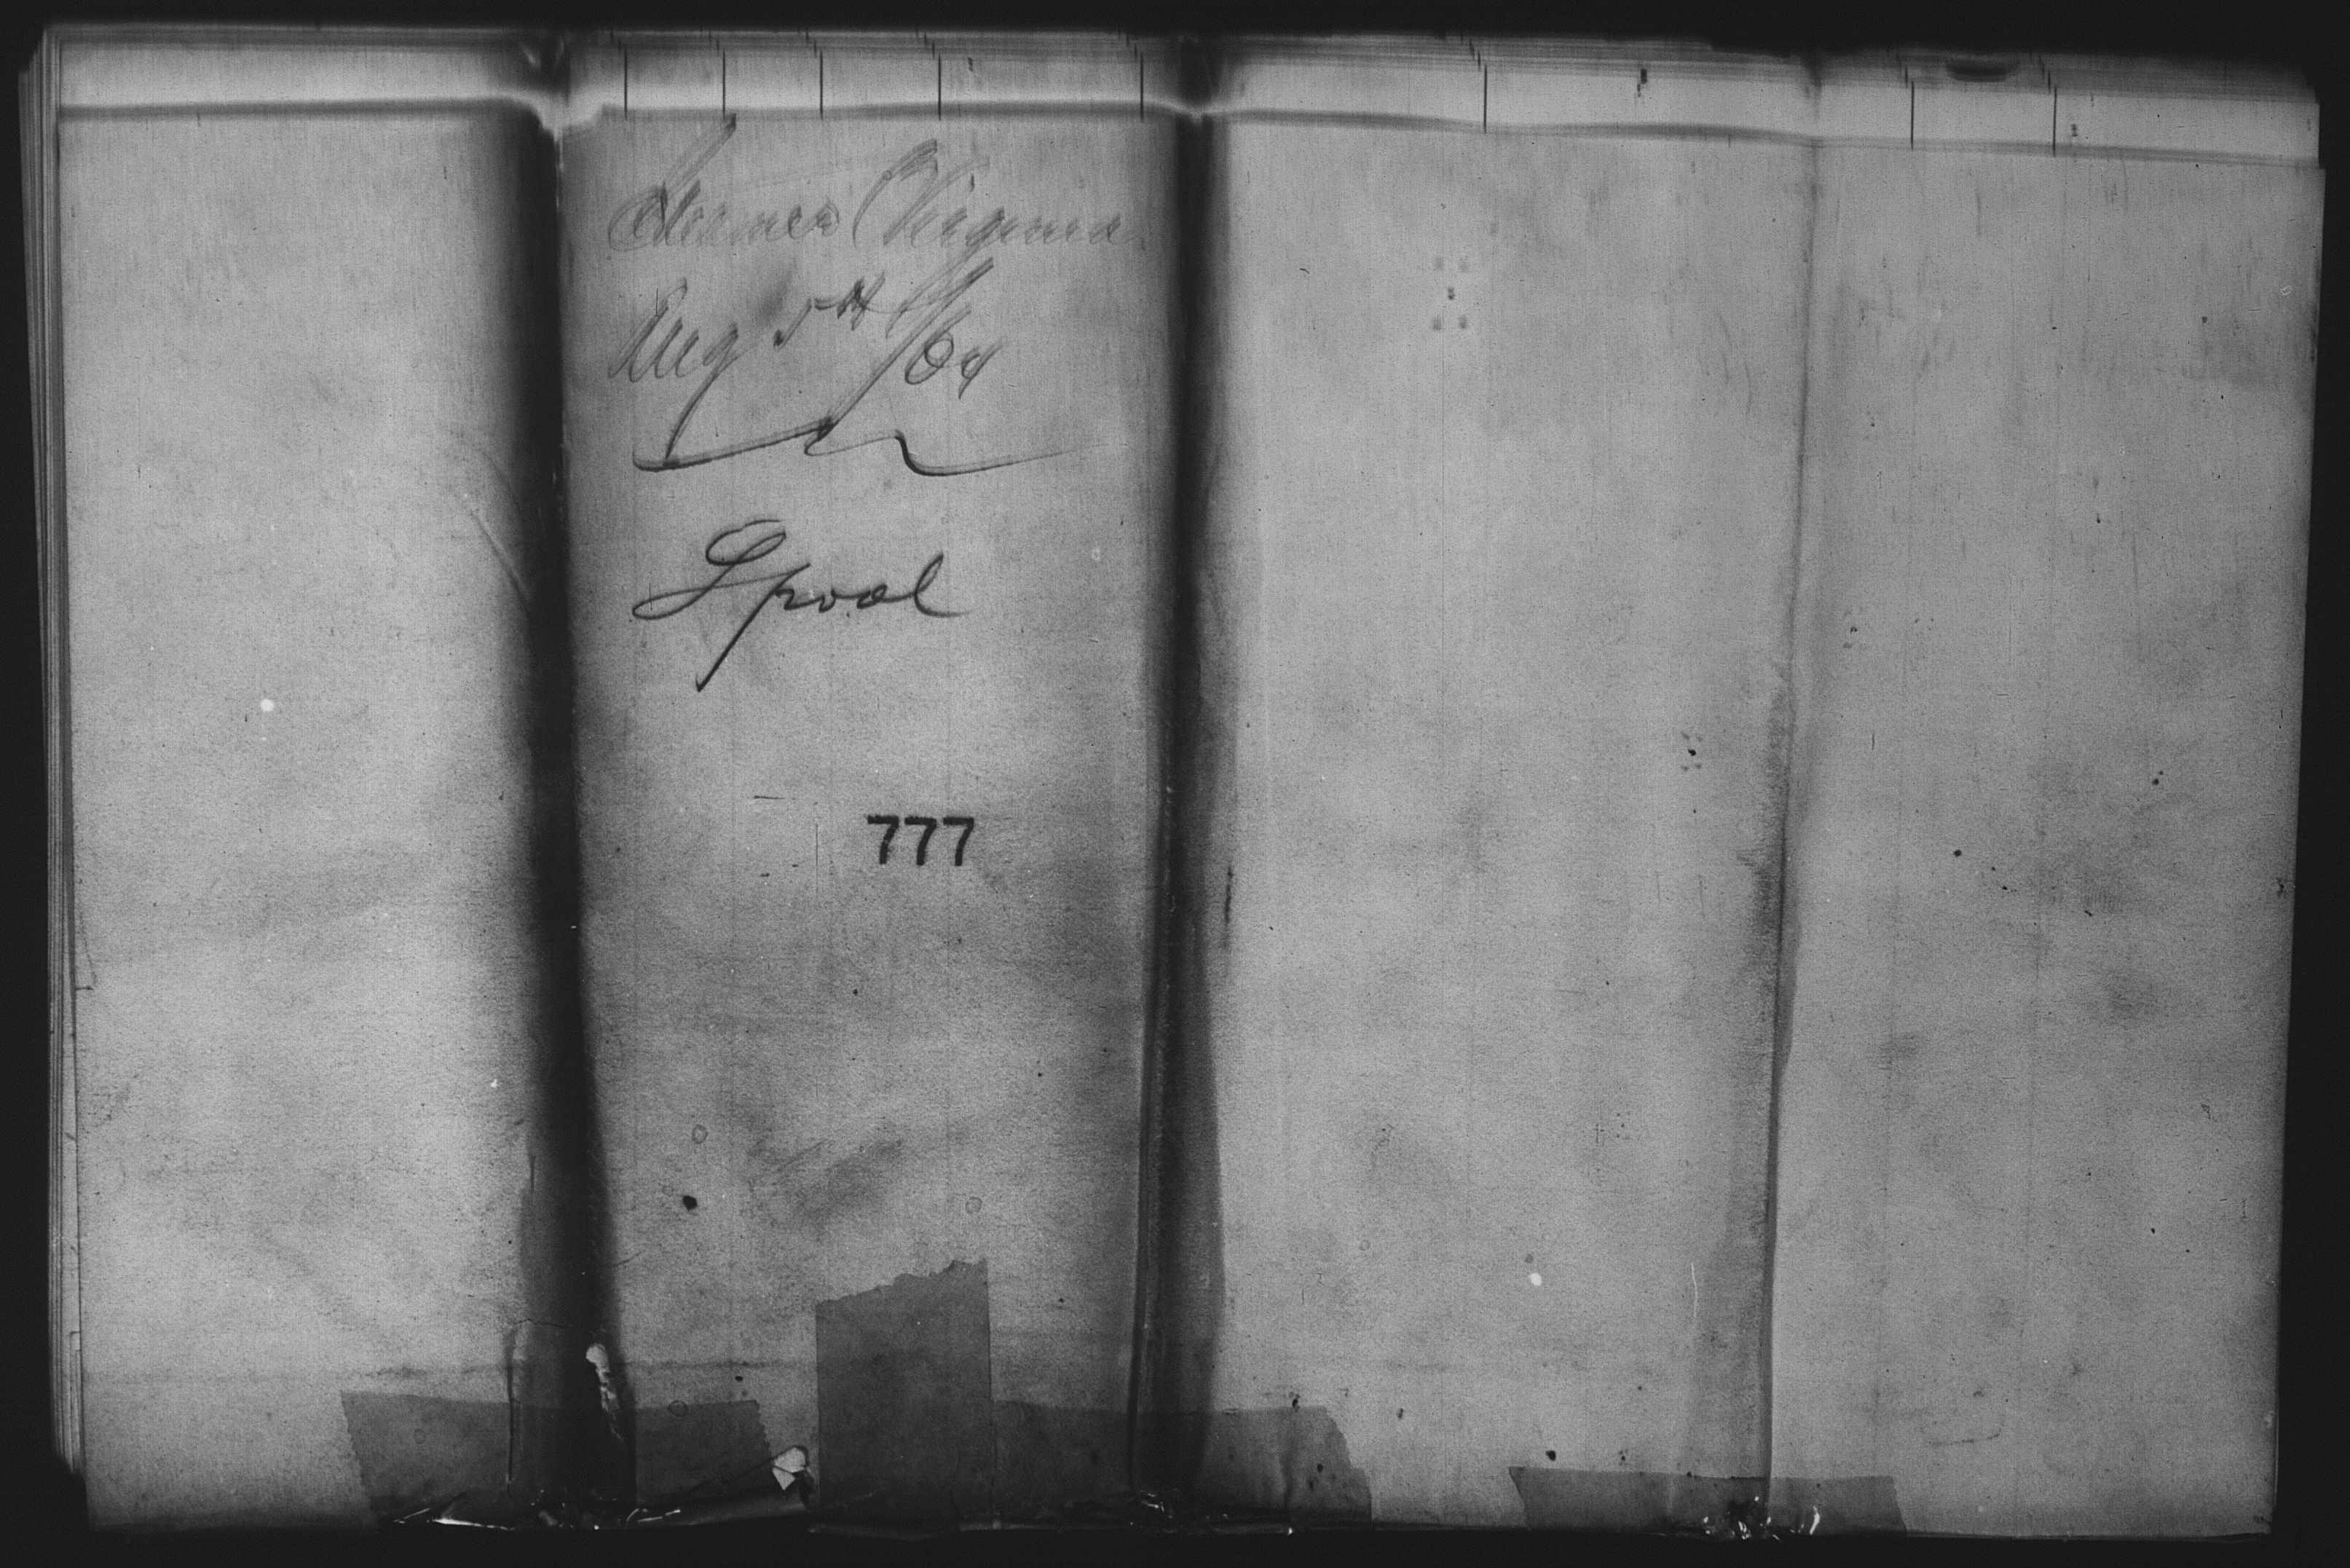 Steamer Virginia
Aug 5th /64
Lpool
777